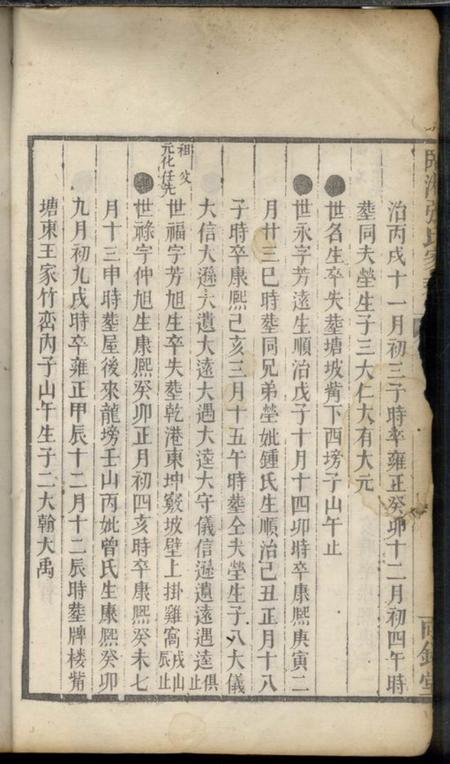 治丙戌十一月初三子時卒雍正癸卯十二月初四午時
塟同夫塋生子三大仁大有大元
世名生卒失塟塘坡觜下西塝子山午止
世永字芳遠生順治戊子十月十四卯時卒康熙庚寅二
月廿三巳時塟同兄弟塋妣鍾氏生順治己丑正月十八
子時卒康熙己亥三月十五午時塟仝夫塋生子八大儀
大信大遜大遺大遠大遇大逵大守儀信遜遺遠遇逵俱止
祖父元化任先
世福字芳旭生卒失塟乾港東坤竅坡壁上掛雞窩戌山辰止
世祿字仲旭生康熙癸卯正月初四亥時卒康熙癸未七
月十三申時塟屋後來龍塝壬山丙妣曾氏生康熙癸卯
九月初九戌時卒雍正甲辰十二月十二辰時塟牌楼觜
塘東王家竹峦丙子山午生子二大翰大禹